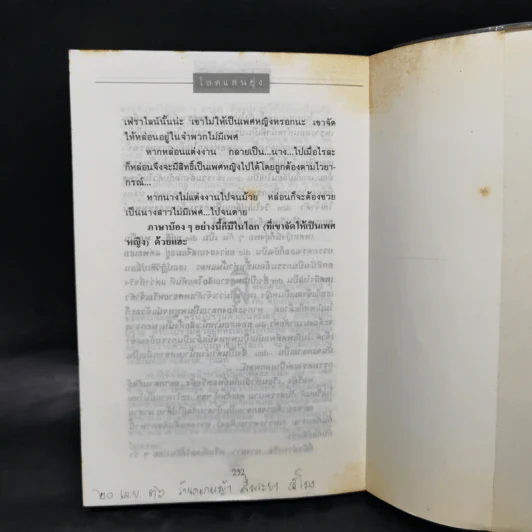 โลดแสนยุ่ง
เฟราไลน์นั้นน่ะ เขาไม่ให้เป็นเพศหญิงหรอกนะ เขาจัด
ให้หล่อนอยู่ในจำพวกไม่มีเพศ
หากหล่อนแต่งงาน กลายเป็น...นาง...ไปเมื่อไรละ
ก็หล่อนจึงจะมีสิทธิ์เป็นเพศหญิงไปได้โดยถูกต้องตามไวยา-
กรณ์...
หากนางไม่แต่งงานไปจนม้วย หล่อนก็จะต้องซวย
เป็นนางสาวไม่มีเพศ...ไปจนตาย
ภาษาบ๊อง ๆ อย่างนี้ก็มีในโลก (ที่เขาจัดให้เป็นเพศ
หญิง) ด้วยแฮะ
232
๒๐ เม.ย. ๓๖